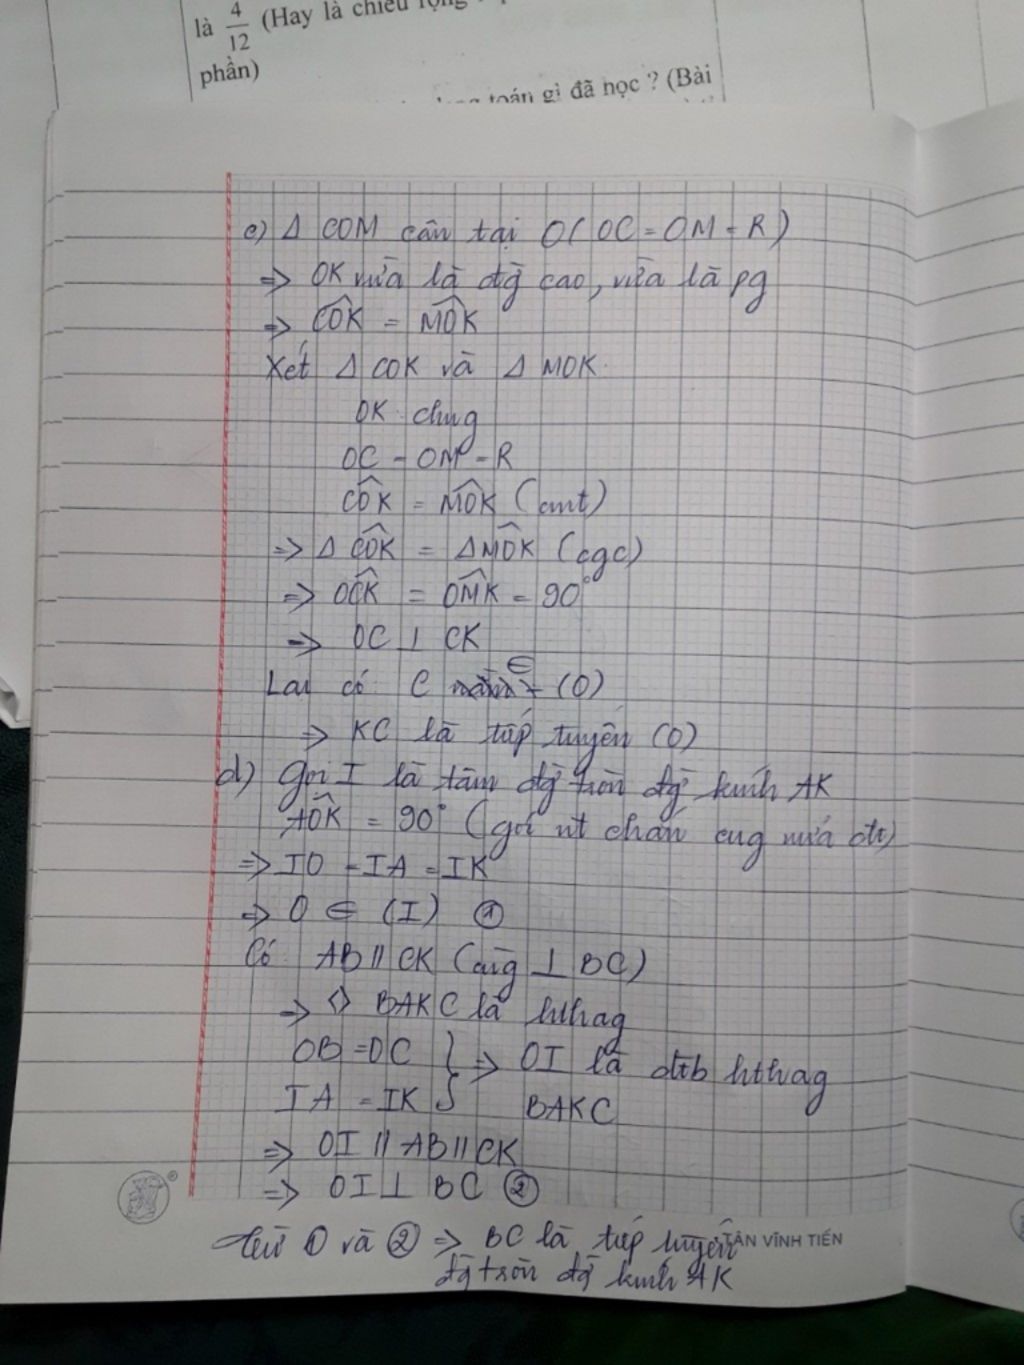 là 4/12 (Hay là chiều rộng
phần)
toán gì đã học ? (Bài
c) Δ COM cân tại O( OC = OM = R)
=> OK vừa là đg cao, vừa là pg
=> \widehat{COK} = \widehat{MOK}
Xét Δ COK và Δ MOK
OK chug
OC = OM = R
\widehat{COK} = \widehat{MOK} (cmt)
=> Δ \widehat{COK} = Δ\widehat{MOK} (cgc)
=> \widehat{OCK} = \widehat{OMK} = 90°
=> OC ⊥ CK
Lại có C ∈ (O)
=> KC là tiếp tuyến (O)
d) Gọi I là tâm đg tròn đg kính AK
\widehat{AOK} = 90° (góc nt chắn cug nửa đtr)
=> IO = IA = IK
=> O ∈ (I) ①
Có AB // CK (cùg ⊥ BC)
=> ◊ BAKC là hthag
OB = OC } => OI là đtb hthag
IA = IK BAKC
=> OI // AB // CK
=> OI ⊥ BC ②
từ ① và ② => BC là tiếp tuyến
TÂN VĨNH TIẾN
đg tròn đg kính AK